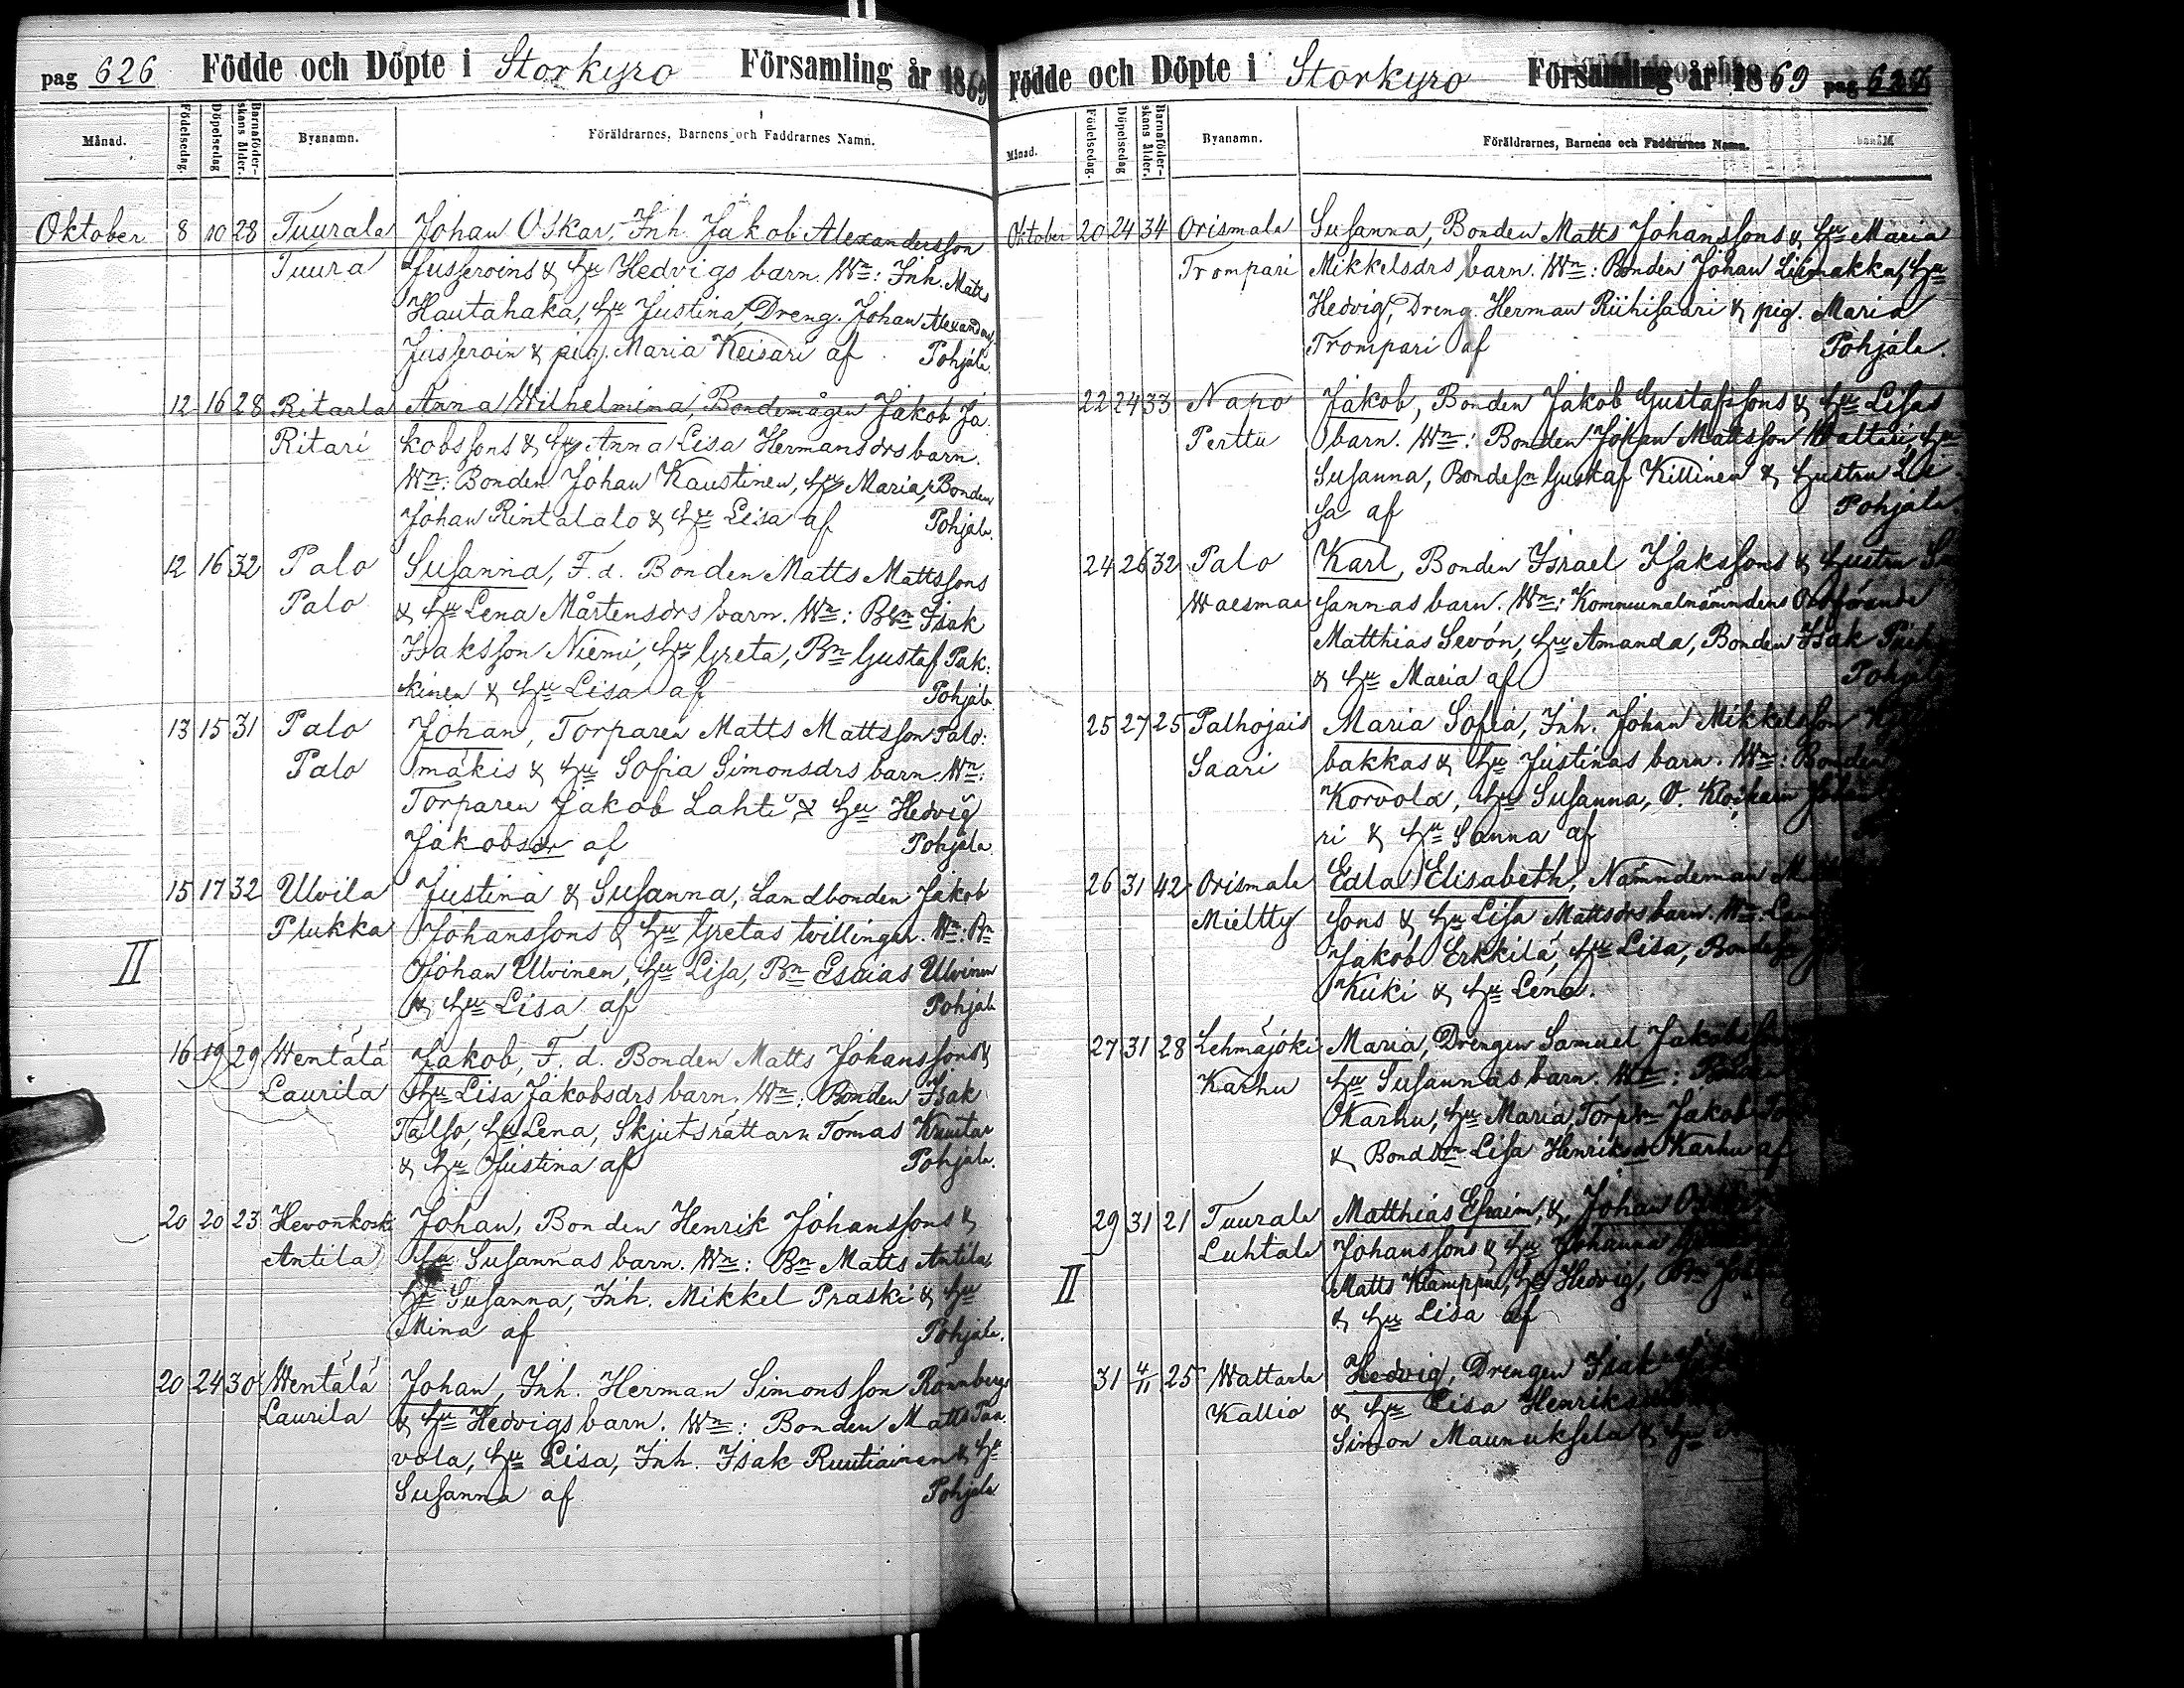 pag 626 Födde och Döpte i Storkyro Församling år 1869
Månad. Födelsedag. Döpelsedag Barnaföder-skans ålder. Byanamn. Föräldrarnes, Barnens och Faddrarnes Namn.
Oktober 8 10 28 Tuurala Johan Oskar, Inh. Jakob Alexandersson
Tuura Jusseroins & Hu Hedvigs barn. Wn: Inh. Matts
Hautahaka, Hu Justina, Dreng. Johan
Jusseroin & pig. Maria Keisari af Pohjala.
12 16 28 Ritarla Anna Wilhelmina, Bondemågen Jakob Ja
Ritari kobssons & Hu Anna Lisa Hermansdrs barn.
Wn: Bonden Johan Kaustinen, Hu Maria, Bonden
Johan Rintalalo & Hu Lisa af Pohjala.
12 16 32 Palo Susanna, F. d. Bonden Matts Mattssons
Palo & Hu Lena Mårtensdrs barn. Wn: Isak
Isaksson Niemi, Hu Greta, Bn Gustaf Pak
kinen & Hu Lisa af Pohjala.
13 15 31 Palo Johan, Torparen Matts Mattsson Palo
Palo mäkis & Hu Sofia Simonsdrs barn. Wn:
Torparen Jakob Lahti & Hu Hedvig
Jakobsdr af Pohjala
15 17 32 Ulvila Justina & Susanna, Landbonden Jakob
Plukka Johanssons & Hu Gretas tvillingar. Wn: Bn
II Johan Ulvinen, Hu Lisa, Bn Esaias Ulvinen
& Hu Lisa af Pohjala
16 19 29 Wentälä Jakob, F. d. Bonden Matts Johanssons &
Laurila Hu Lisa Jakobsdrs barn. Wn: Bonden Isak
Talso, Hu Lena, Skjutsrättarn Tomas Knuutar
& Hu Justina af Pohjala.
20 20 23 Hevonkoski Johan, Bonden Henrik Johanssons &
Antila Hu Susannas barn. Wn: Bn Matts Antila
Hu Susanna, Inh. Mikkel Praski & Hu
Mina af Pohjala.
20 24 30 Wentälä Johan, Inh. Herman Simonsson Rönnbergs
Laurila & Hu Hedvigs barn. Wn: Bonden Matts Paa
vola, Hu Lisa, Inh. Isak Ruutiainen & Hu
Susanna af Pohjala
Födde och Döpte i Storkyro Församling år 1869 pag
Månad. Födelsedag. Döpelsedag Barnaföder-skans ålder. Byanamn. Föräldrarnes, Barnens och Faddrarnes Namn.
Oktober 20 24 34 Orismala Susanna, Bonden Matts Johanssons & Hu Maria
Trompari Mikkelsdrs barn. Wn: Bonden Johan Liimakka, Hu
Hedvig, Dreng. Herman Riihisaari & pig. Maria
Trompari af Pohjala.
22 24 33 Napo Jakob, Bonden Jakob Gustafssons & Hu Lisas
Perttu barn. Wn: Bonden Johan Mattsson Waltari, Hu
Susanna, Bondesn Gustaf Killinen & Hustru Li
sa af Pohjala
24 26 32 Palo Karl, Bonden Israel Isakssons & Hustru Su
Waesmaa sannas barn. Wn: Kommunalnämndens Ordförande
Matthias Sevón, Hu Amanda, Bonden Isak
& Hu Maria af Pohjala
25 27 25 Palhojais Maria Sofia, Inh. Johan Mikkelsson
Saari bakkas & Hu Justinas barn. Wn: Bonden
Korvola, Hu Susanna,
ri & Hu Sanna af
26 31 42 Orismala Edla Elisabeth, Nämndeman
Mieltty sons & Hu Lisa Mattsdrs barn. Wn:
Jakob Erkkilä, Hu Lisa, Bondesn
Kuki & Hu Lena.
27 31 28 Lehmäjoki Maria, Drengen Samuel Jakobsson
Karhu Hu Susannas barn. Wn: Bonden
Karhu, Hu Maria, Jakob
& Lisa Henriksdr Karhu af
29 31 21 Tuurala Matthias Efraim, & Johan
Luhtala Johanssons & Hu Johanna
II Matts Klamppu, Hu Hedvig, Bn
& Hu Lisa af
31 4/11 25 Wattarla Hedvig, Drengen Isak
Kallio & Hu Lisa Henriksdr
Simon Maunuksela & Hu